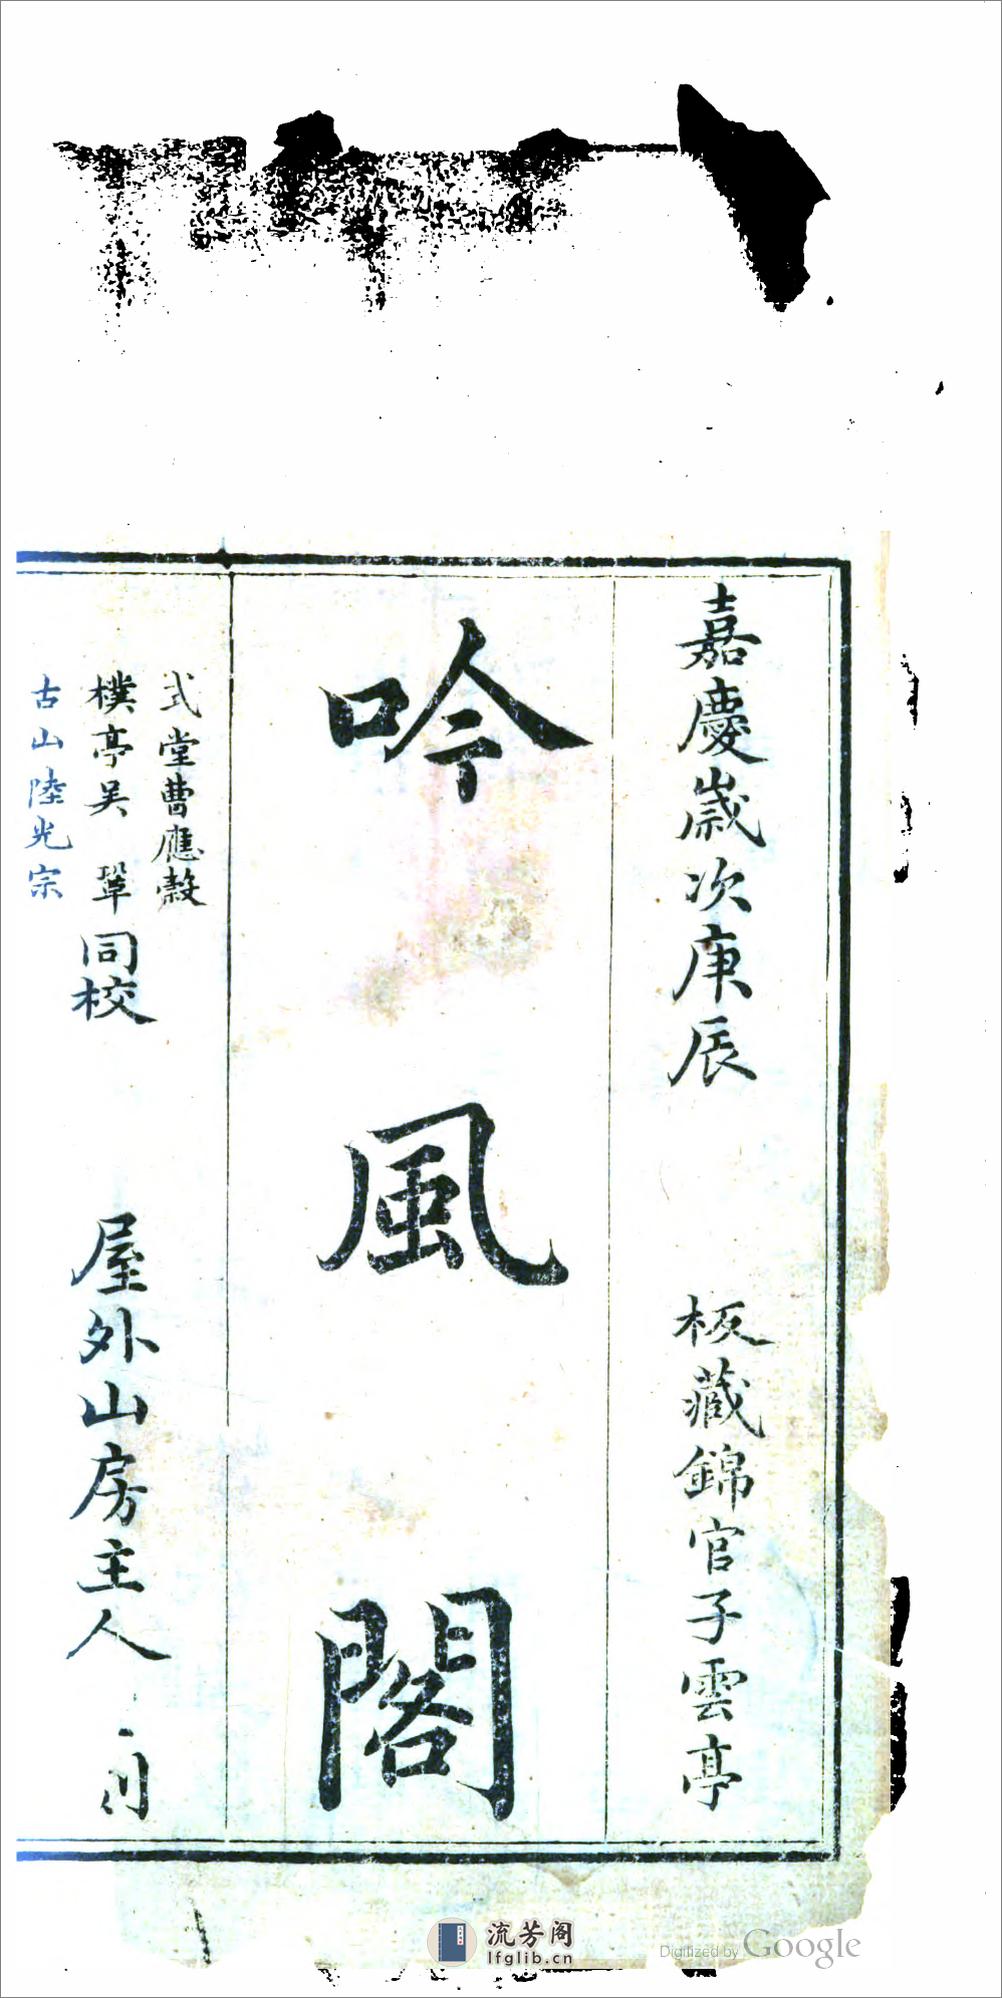 嘉慶歲次庚辰
板藏錦官子雲亭
吟風閣
式堂曹應穀
樸亭吴 鞏
古山陸光宗
同校
屋外山房主人
流芳阁
lfglib.cn
Digitized by Google